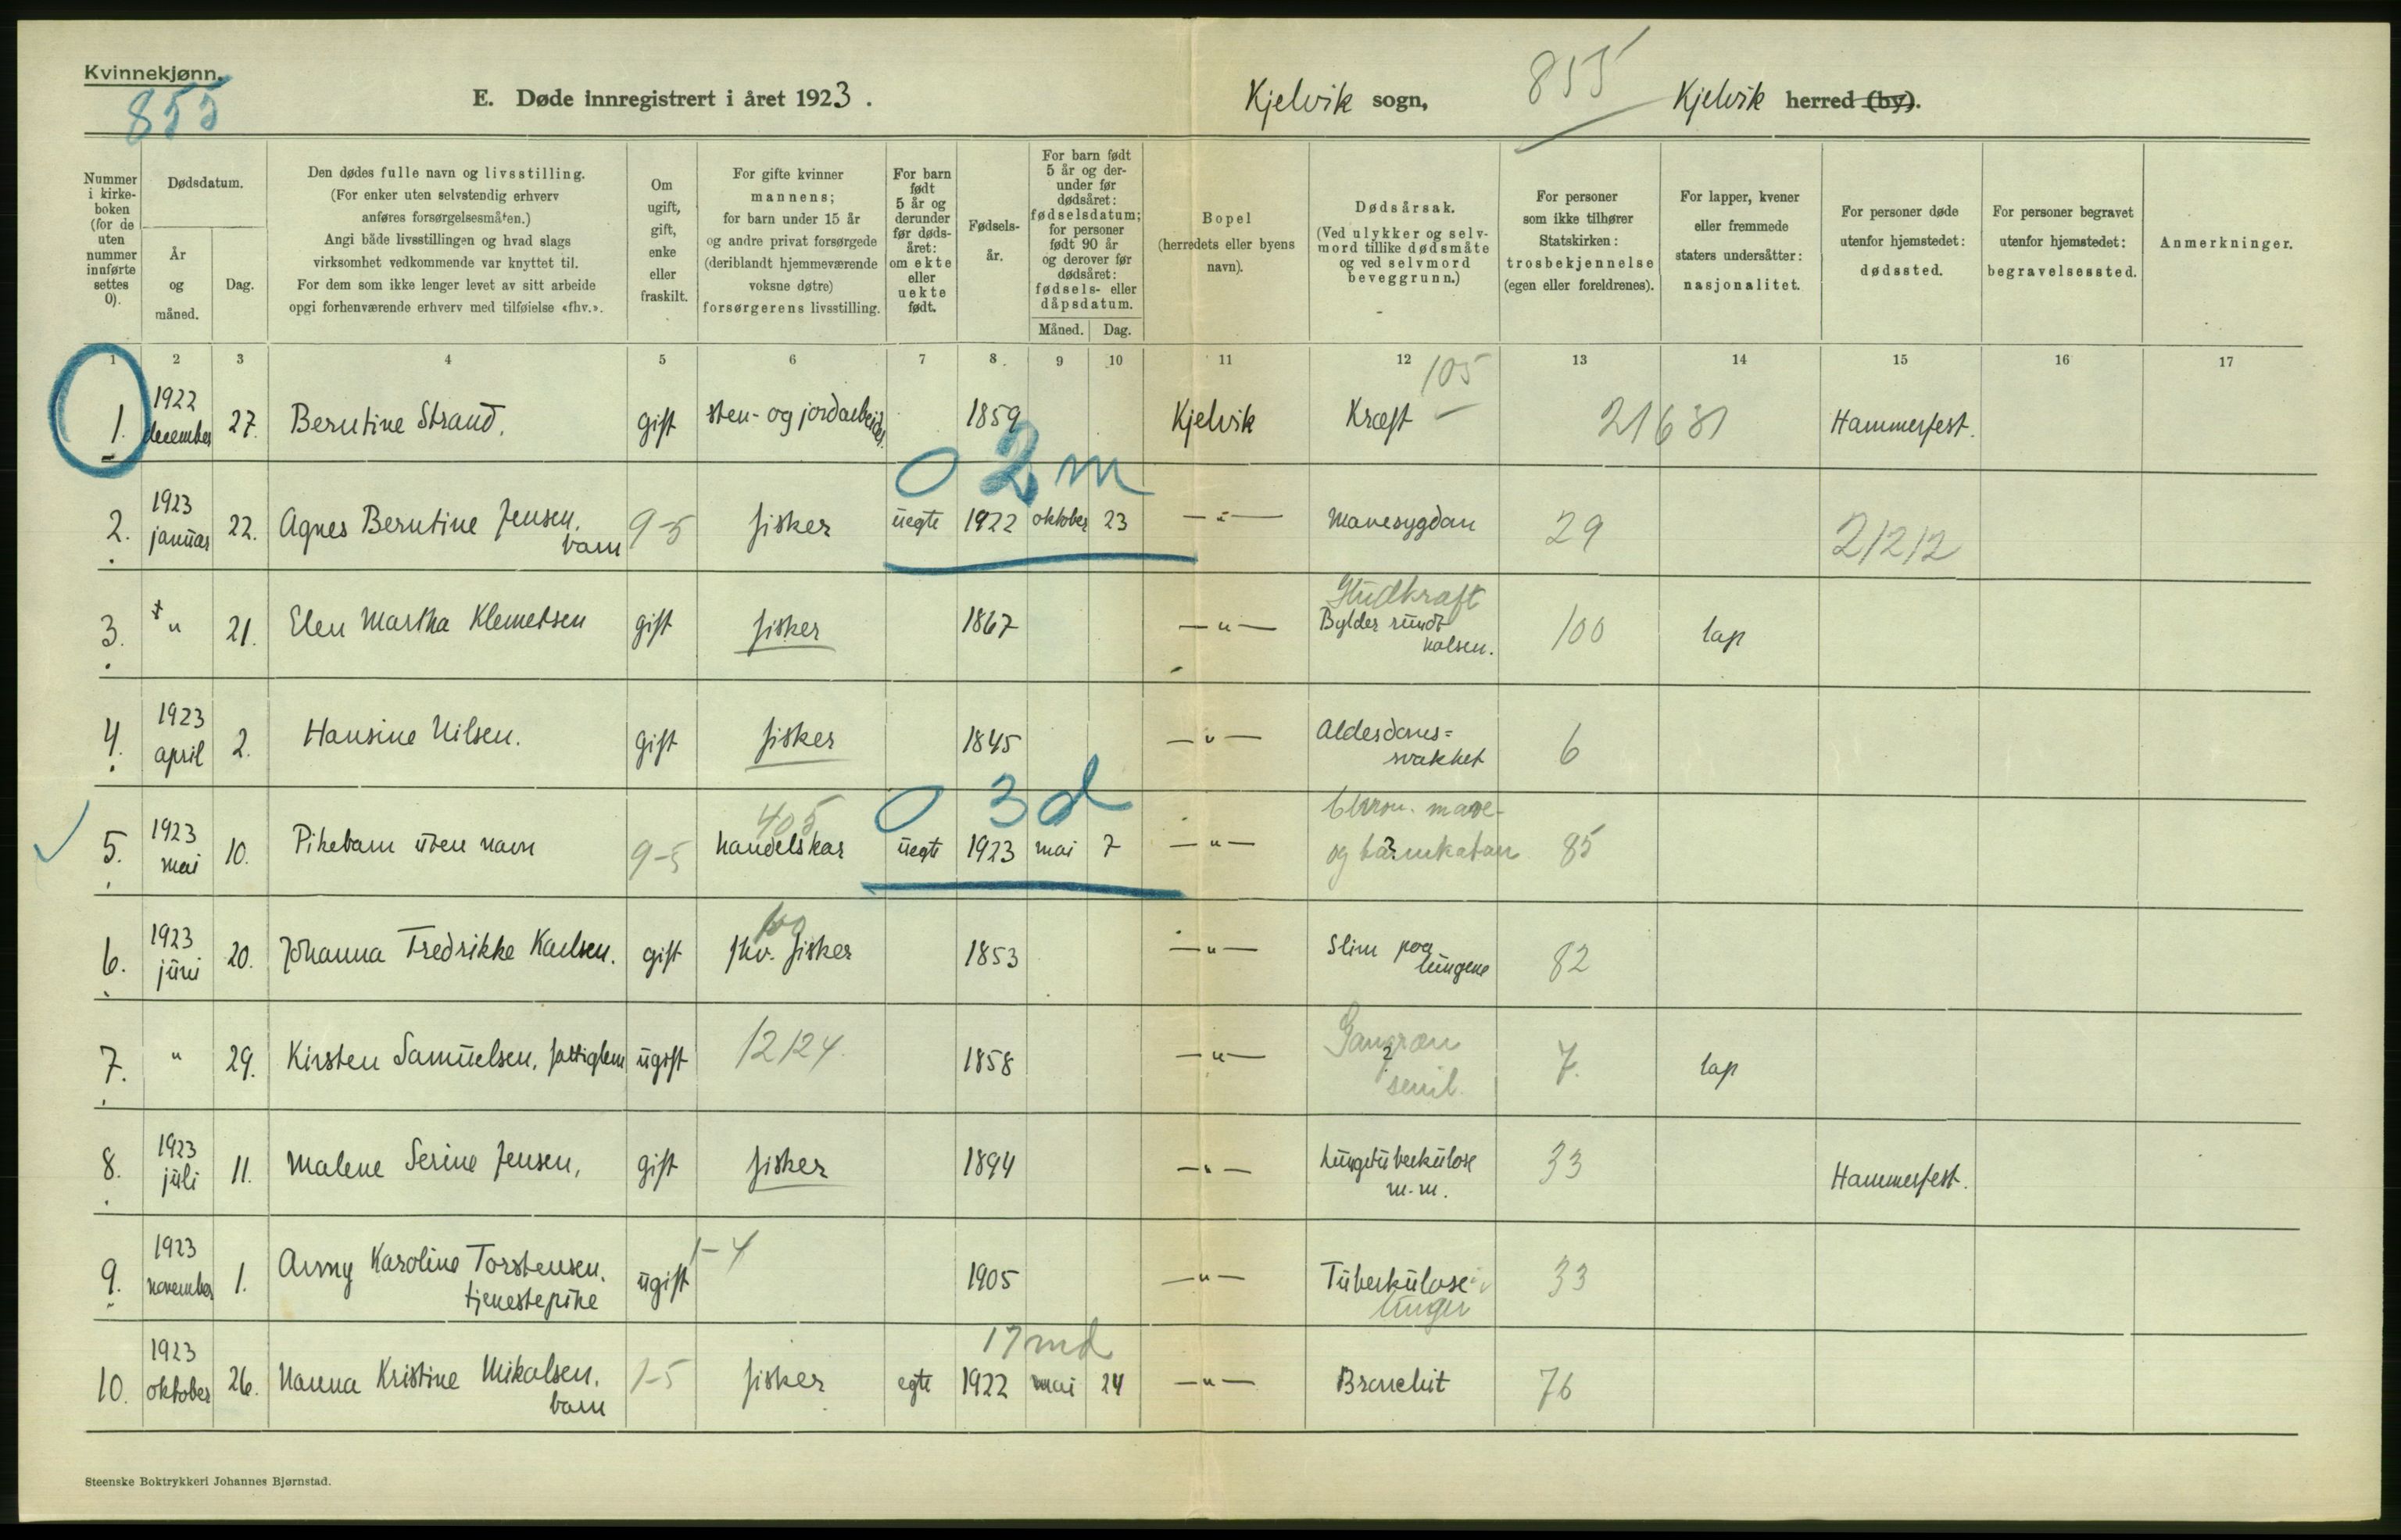 Kvinnekjønn.
855
E. Døde innregistrert i året 1923.
Kjelvik sogn,
855
Kjelvik herred (by).
Nummer i kirke-boken (for de uten nummer innførte settes 0).
Dødsdatum.
År og måned.
Dag.
Den dødes fulle navn og livsstilling.
(For enker uten selvstendig erhverv
anføres forsørgelsesmåten.)
Angi både livsstillingen og hvad slags
virksomhet vedkommende var knyttet til.
For dem som ikke lenger levet av sitt arbeide
opgi forhenværende erhverv med tilføielse «fhv.».
Om ugift, gift, enke eller fraskilt.
For gifte kvinner
mannens;
for barn under 15 år
og andre privat forsørgede
(deriblandt hjemmeværende
voksne døtre)
forsørgerens livsstilling.
For barn født 5 år og derunder før døds-året: om ekte eller uekte født.
Fødsels-år.
For barn født 5 år og der-under før dødsåret: fødselsdatum; for personer født 90 år og derover før dødsåret: fødsels- eller dåpsdatum.
Måned. Dag.
Bopel
(herredets eller byens
navn).
Dødsårsak.
(Ved ulykker og selv-
mord tillike dødsmåte
og ved selvmord
beveggrunn.)
For personer
som ikke tilhører
Statskirken:
trosbekjennelse
(egen eller foreldrenes).
For lapper, kvener
eller fremmede
staters undersåtter:
nasjonalitet.
For personer døde
utenfor hjemstedet:
dødssted.
For personer begravet
utenfor hjemstedet:
begravelsessted.
Anmerkninger.
1 2 3 4 5 6 7 8 9 10 11 12 13 14 15 16 17
105
1. 1922 december 27. Berntine Strand. gift sten- og jordarbeider. 1859 Kjelvik Kræft — 21631 Hammerfest.
0 2 m
2. 1923 januar 22. Agnes Berntine Jensen. barn 9-5 fisker uegte 1922 oktober 23 —"— Mavesygdom 29 21212
3. " 21. Elen Martha Klemetsen gift fisker 1867 —"— Hudkraft Bylder rundt halsen. 100 lap
4. 1923 april 2. Hansine Nilsen. gift fisker 1845 —"— Alderdoms= svakhet 6
0 3 d
5. 1923 mai 10. Pikebarn uten navn 9-5 405 handelskar uegte 1923 mai 7 —"— Chron. mave- og tarmkatarr 85
6. 1923 juni 20. Johanna Fredrikke Karlsen. gift fhv. fisker 1853 —"— Slim paa lungene 82
7. " 29. Kirsten Samuelsen, fattiglem ugift 12124 1858 —"— Gangræn ? senil. 7. lap
8. 1923 juli 11. Malene Serine Jensen, gift fisker 1894 —"— Lungetuberkulose m.m. 33 Hammerfest.
9. 1923 november 1. Anny Karoline Torstensen. tjenestepike ugift 1-4 1905 —"— Tuberkulose i lunger 33
17 md
10. 1923 oktober 26. Nanna Kristine Mikalsen. barn 1-5 fisker egte 1922 mai 24 —"— Bronchit 76
Steenske Boktrykkeri Johannes Bjørnstad.